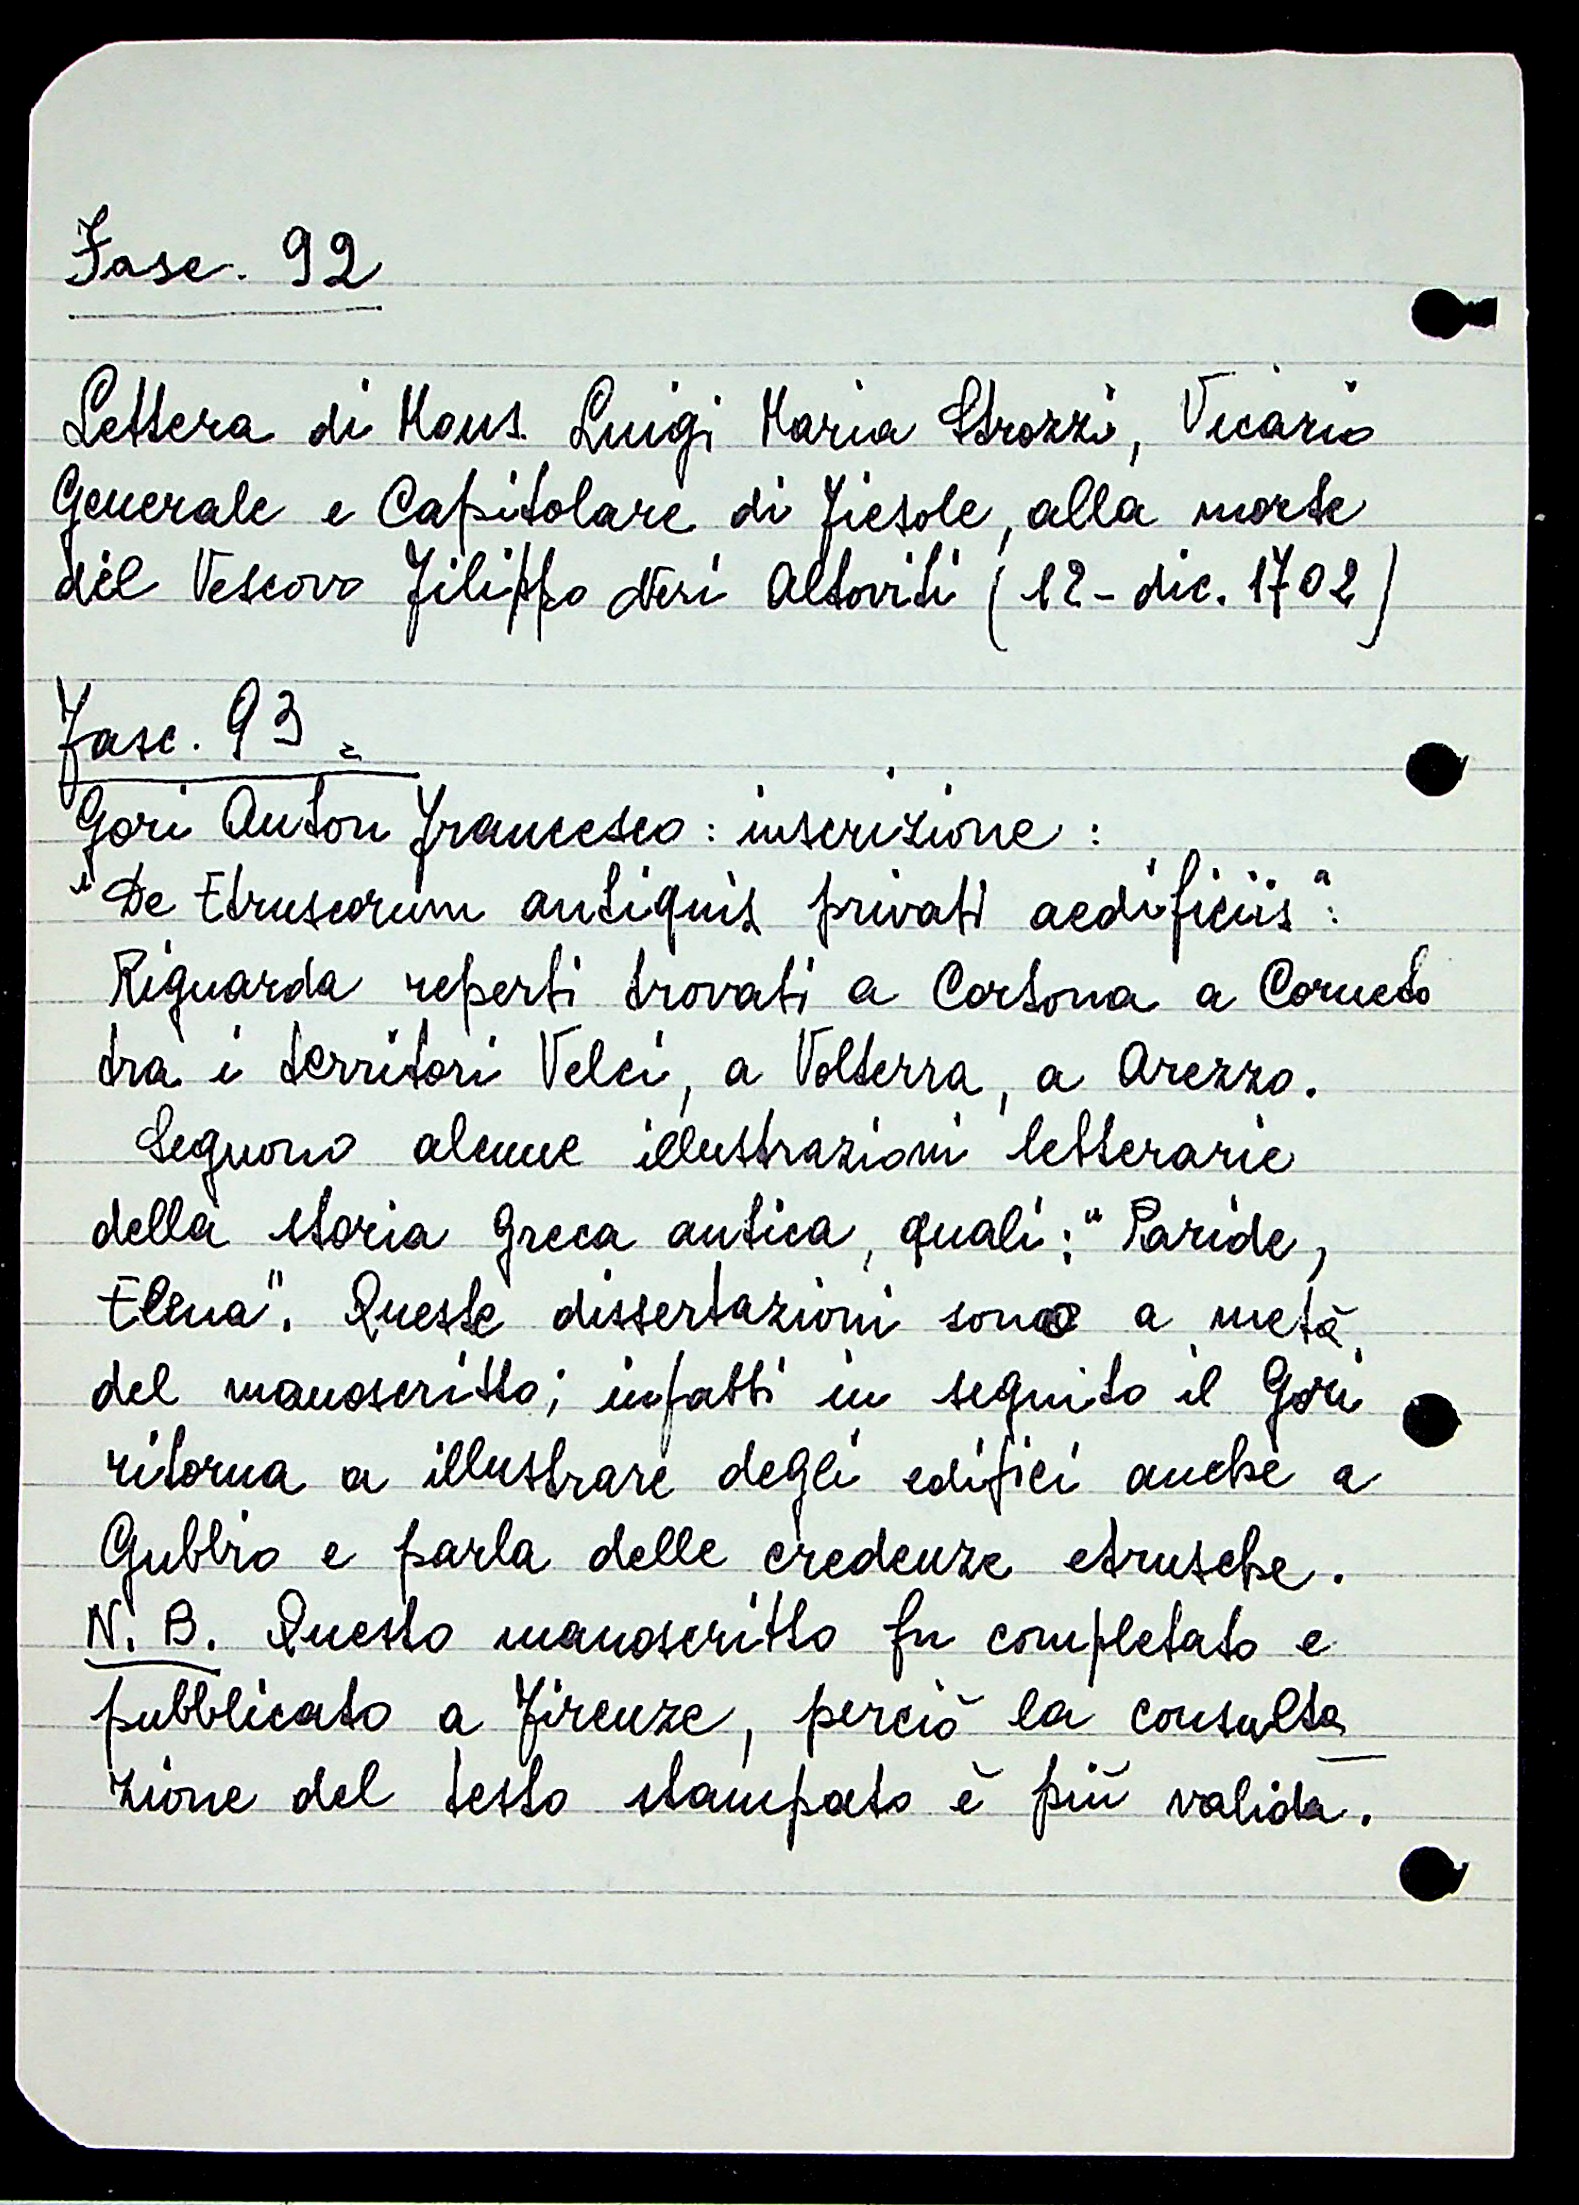 Fasc. 92
Lettera di Mons. Luigi Maria Strozzi, Vicario
Generale e Capitolare di Fiesole, alla morte
del Vescovo Filippo Neri Altoviti (12-dic. 1702)
Fasc. 93 =
Gori Anton Francesco: inscrizione:
"De Etruscorum antiquis privati aedificiis":
Riguarda reperti trovati a Cortona a Corneto
tra i territori Velci, a Volterra, a Arezzo.
Seguono alcune illustrazioni letterarie
della storia Greca antica, quali: "Paride,
Elena". Queste dissertazioni sono a metà
del manoscritto; infatti in seguito il Gori
ritorna a illustrare degli edifici anche a
Gubbio e parla delle credenze etrusche.
N. B. Questo manoscritto fu completato e
pubblicato a Firenze, perciò la consulta
zione del testo stampato è più valida.